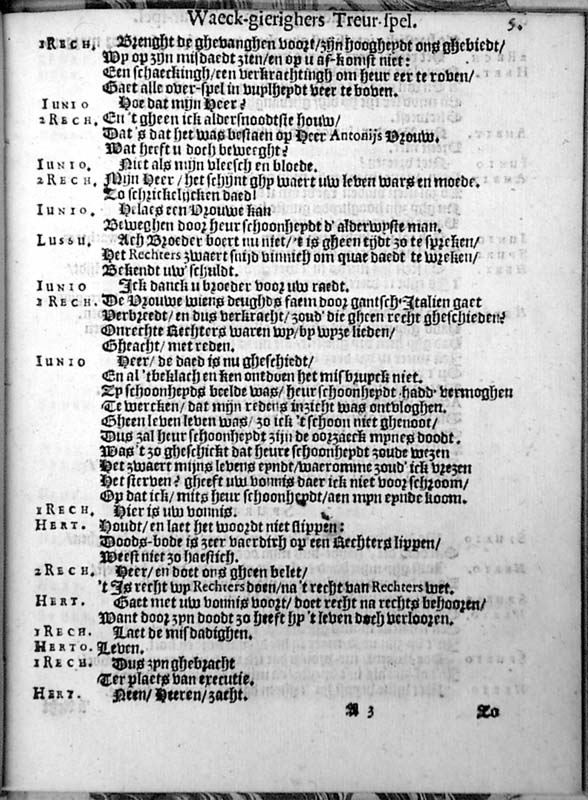 Waeck-gierighers Treur-spel. 5.
1RECH. Brenght de ghevanghen voort/zijn hoogheydt ons ghebiedt/
Wy op zijn misdaedt zien/en op u af-komst niet:
Een schaeckingh/een verkrachtingh om heur eer te roven/
Gaet alle over-spel in vuylheydt veer te boven.
IUNIO Hoe dat mijn Heer?
2RECH. En 't gheen ick aldersnoodtste houw/
Dat 's dat het was bestaen op Heer Antonijs Vrouw.
Wat heeft u doch beweeght?
IUNIO. Niet als mijn vleesch en bloede.
2RECH. Mijn Heer/het schijnt ghy waert uw leven wars en moede.
To schrickelijcken daed!
IUNIO. Helaes een Vrouwe kan
Beweghen door heur schoonheydt d'alderwyste man.
LUSSU. Ach Broeder boert nu niet/'t is gheen tijdt zo te spreken/
Het Rechters zwaert snijd vinnich om quat daedt te wreken/
Bekendt uw' schuldt.
IUNIO Ick danck u broeder voor uw raedt.
2RECH. De Vrouwe wiens deughds faem door gantsch-Italien gaet
Verbreedt/en dus verkracht/zoud' die gheen recht gheschieden?
Onrechte Rechters waren wy/by wyze lieden/
Gheacht/met reden.
IUNIO Heer/de daed is nu gheschiedt/
En al 'tbeklach en ken ontdoen het misbruyck niet.
Zy schoonheyds beelde was/heur schoonheydt hadd' vermoghen
Te wercken/dat mijn redens inzicht was ontvloghen.
Gheen leven leven was/zo ick 't schoon niet ghenoot/
Dus zal heur schoonheydt zijn de oorzaeck mynes doodt.
Was 't zo gheschickt dat heure schoonheydt zoude wezen
Het zwaert mijns levens eyndt/waeromme zoud' ick vrezen
Het sterven? gheeft uw vonnis daer ick niet voor schroom/
Op dat ick/mits heur schoonheydt/aen myn eynde koom.
1RECH. Hier is uw vonnis.
HERT. Houdt/en laet het woordt niet slippen:
Doods-bode is zeer vaerdirh op een Rechters lippen/
Weest niet zo haestich.
2RECH. Heer/en doet ons gheen belet/
't Is recht wy Rechters doen/na 't recht van Rechters wet.
HERT. Gaet met uw vonnis voort/doet recht na rechts behooren/
Want door zyn doodt zo heeft hy 't leven doch verlooren.
1RECH. Laet de misdadighen.
HERTO. Leven.
1RECH. Dus zyn ghebracht
Ter plaets van executie.
HERT. Neen/Heeren/zacht.
A 3 Zo